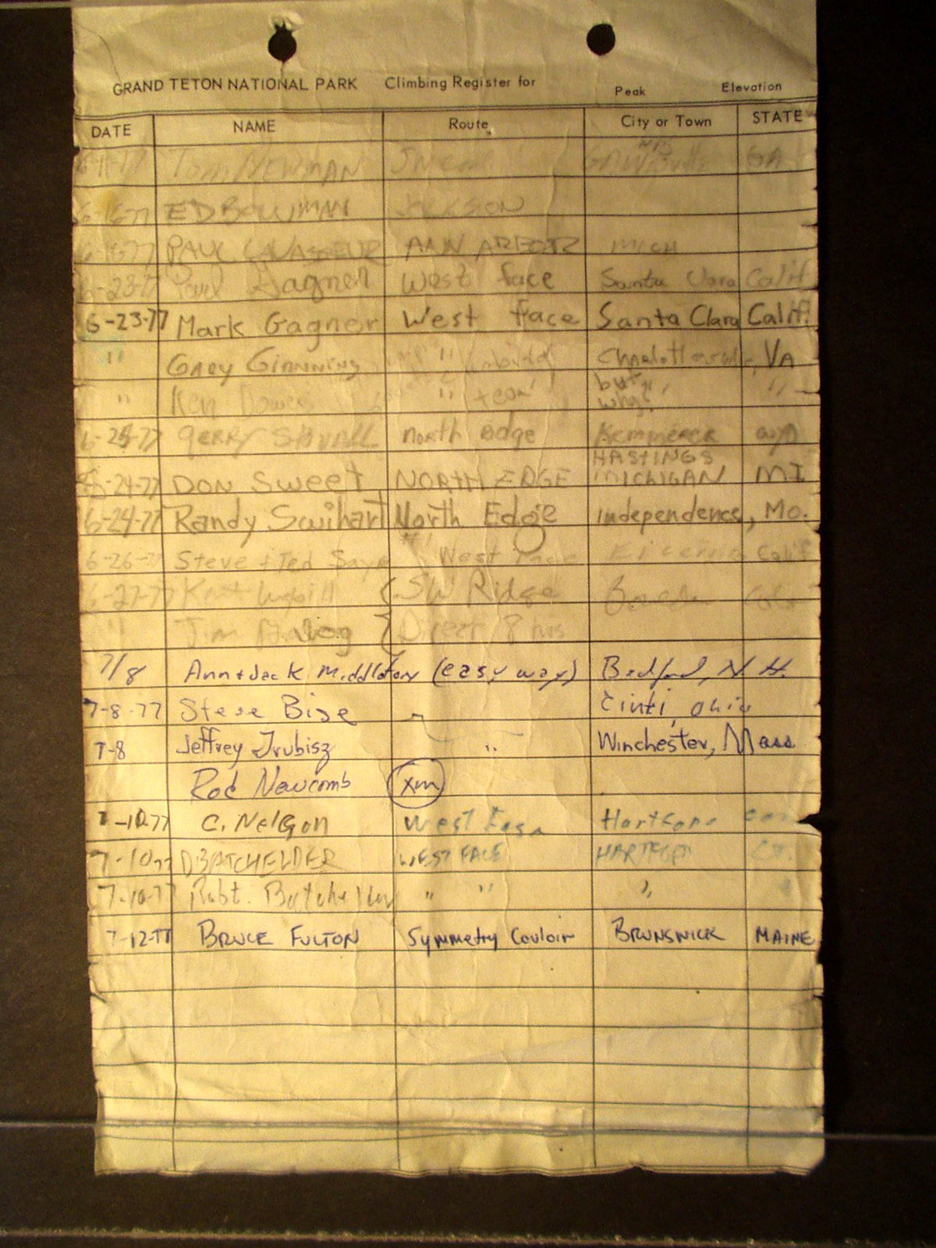 GRAND TETON NATIONAL PARK Climbing Register for Peak Elevation
DATE NAME Route City or Town STATE
Tom NEWMAN GA
ED BOWMAN JACKSON
PAUL ANN ARBOR MICH
6-23-77 Paul Gagner West face Santa Clara Calif
6-23-77 Mark Gagner West face Santa Clara Calif.
" Gary Ginning " VA
" Ken " team but why? "
6-25-77 Gerry North Edge Kemmerer
HASTINGS
6-24-77 DON Sweet NORTH EDGE MICHIGAN MI
6-24-77 Randy Swihart North Edge independence, Mo.
6-26-77 Steve + Ted West face Calif
6-27-77 SW Ridge
" Jim Direct 8 hrs
7/8 Ann + Jack Middleton (easy way) Bedford, N.H.
7-8-77 Steve Bise Cinti, Ohio
7-8 Jeffrey Trubisz " Winchester, Mass
Rod Newcomb xm
7-10-77 C. Nelson West Face Hartford
7-10-77 D BATCHELDER WEST FACE HARTFORD
7-10-77 Robt. Batchelder " " "
7-12-77 BRUCE FULTON Symmetry Couloir BRUNSWICK MAINE